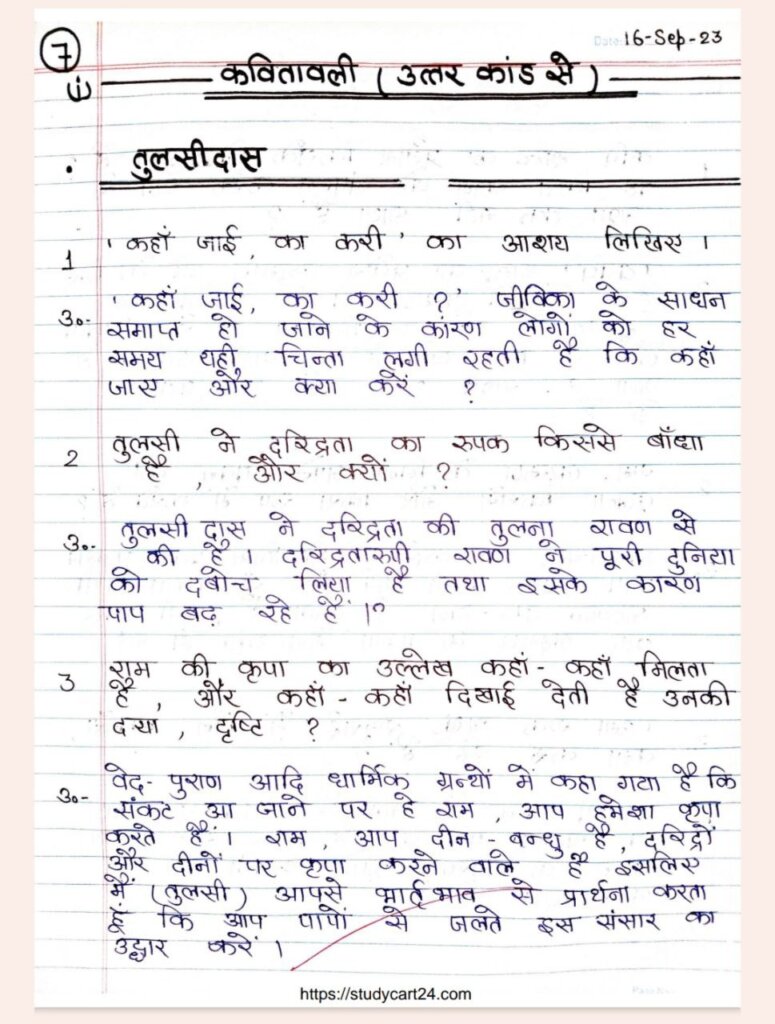 Date: 16-Sep-23
7
कवितावली ( उत्तर कांड से )
तुलसीदास
1 'कहाँ जाई, का करी' का आशय लिखिए ।
उ०- 'कहाँ जाई, का करी ?' जीविका के साधन
समाप्त हो जाने के कारण लोगों को हर
समय यही चिन्ता लगी रहती है कि कहाँ
जाए और क्या करें ?
2 तुलसी ने दरिद्रता का रुपक किससे बाँधा
है , और क्यों ?
उ०- तुलसी दास ने दरिद्रता की तुलना रावण से
की है । दरिद्रतारुपी रावण ने पूरी दुनिया
को दबोच लिया है तथा इसके कारण
पाप बढ़ रहे हैं ।
3 राम की कृपा का उल्लेख कहां - कहाँ मिलता
है , और कहाँ - कहाँ दिखाई देती है उनकी
दया , दृष्टि ?
उ०- वेद - पुराण आदि धार्मिक ग्रन्थों में कहा गया है कि
संकट आ जाने पर हे राम , आप हमेशा कृपा
करते हैं । राम , आप दीन - बन्धु है , दरिद्रों
और दीनों पर कृपा करने वाले है इसलिए
मैं (तुलसी) आपसे भाव से प्रार्थना करता
हूं कि आप पापों से जलते इस संसार का
उद्धार करें ।
https://studycart24.com